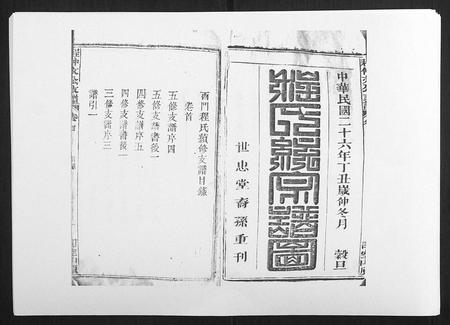 中華民國二十六年丁丑歲仲冬月 穀旦
程氏宗譜圖
世忠堂裔孫重刊
西門程氏續修支譜目錄
卷首
五修支譜序四
五修支譜書後一
四修支譜序五
四修支譜書後一
三修支譜序三
譜引一